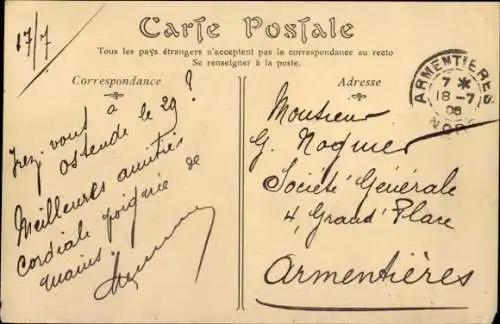 17/7
Carte Postale
Tous les pays étrangers n'acceptent pas la correspondance au recto
Se renseigner à la poste.
Correspondance
Irez vous à
Ostende le 29 ?
Meilleures amitiés
cordiale poignée de
mains.
Adresse
ARMENTIERES
7 *
18-7
08
NORD
Monsieur
G. Noguier
Société Générale
4, Grand' Place
Armentières